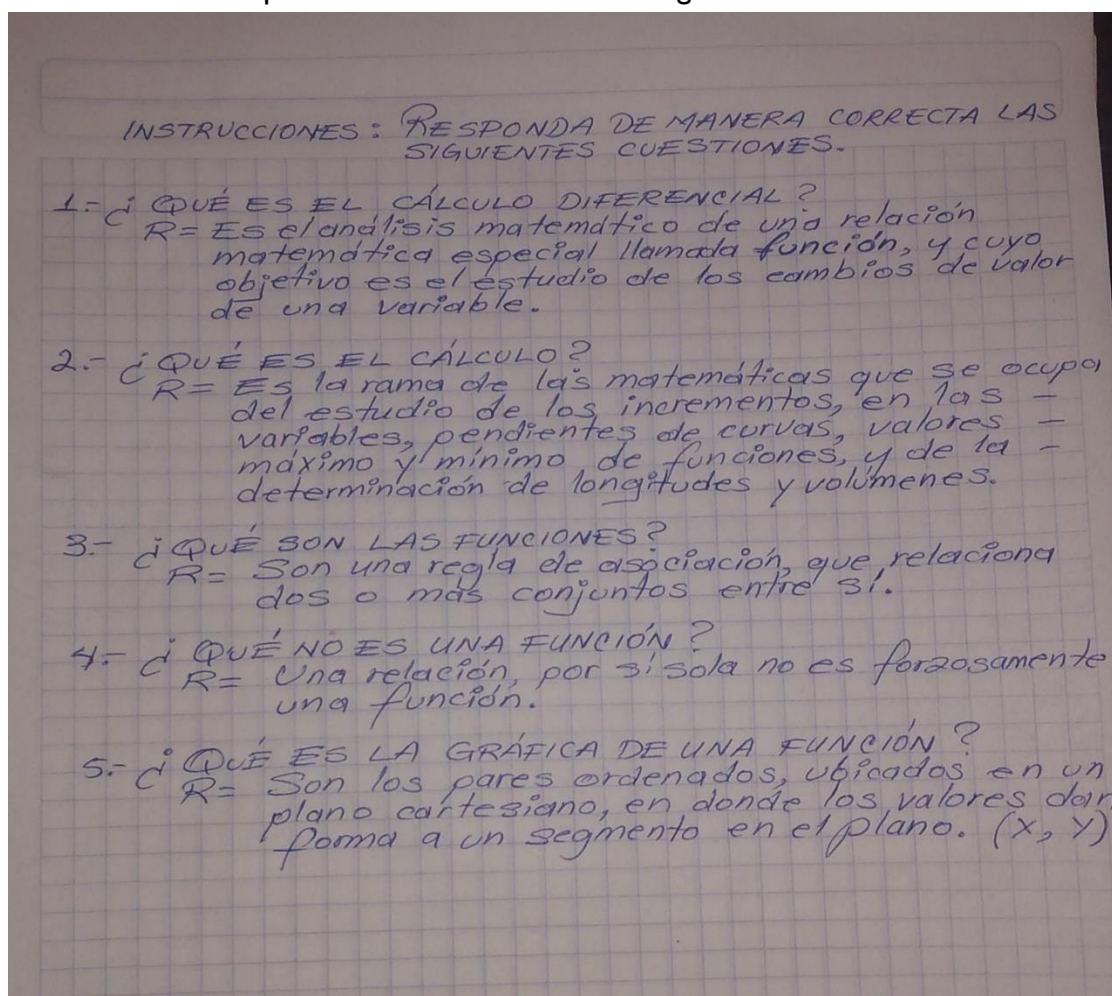 INSTRUCCIONES: RESPONDA DE MANERA CORRECTA LAS
SIGUIENTES CUESTIONES.
1.- ¿QUÉ ES EL CÁLCULO DIFERENCIAL?
R= Es el análisis matemático de una relación
matemática especial llamada función, y cuyo
objetivo es el estudio de los cambios de valor
de una variable.
2.- ¿QUÉ ES EL CÁLCULO?
R= Es la rama de las matemáticas que se ocupa
del estudio de los incrementos, en las -
variables, pendientes de curvas, valores -
máximo y mínimo de funciones, y de la -
determinación de longitudes y volúmenes.
3.- ¿QUÉ SON LAS FUNCIONES?
R= Son una regla de asociación, que relaciona
dos o más conjuntos entre sí.
4.- ¿QUÉ NO ES UNA FUNCIÓN?
R= Una relación, por sí sola no es forzosamente
una función.
5.- ¿QUÉ ES LA GRÁFICA DE UNA FUNCIÓN?
R= Son los pares ordenados, ubicados en un
plano cartesiano, en donde los valores dan
forma a un segmento en el plano. (X, Y)